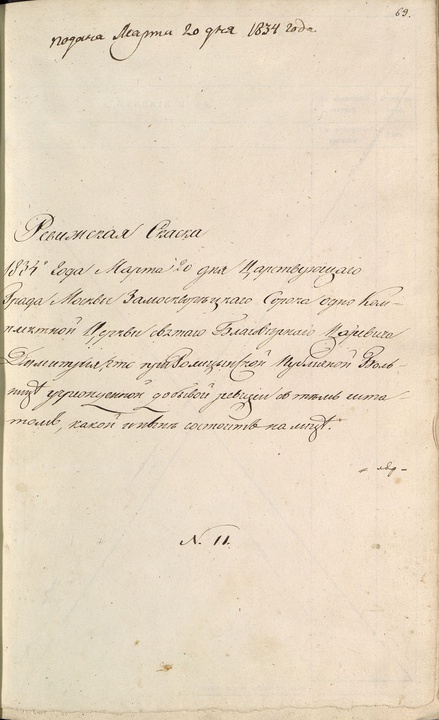 69.
подана Марта 20 дня 1834 года.
Ревижская Скаска
1834º года Марта 20 дня Царствующаго
Града Москвы Замоскворецкаго Сорока одно Ком-
плектной Церкви святаго Благовернаго Царевича
Димитрия, что при Голицынской Публичной Боль-
нице учрожденной до бывой ревизии съ темъ шта-
томъ, какой и ныне состоитъ на лице.
N. 11.